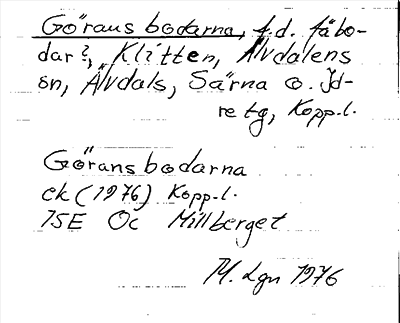 Görans bodarna, f.d. fäbo-
dar?, Klitten, Älvdalens
sn, Älvdals, Särna o. Id-
re tg, Kopp.l.
Görans bodarna
ek (1976) Kopp.l.
15E 0c Millberget
M. Lgn 1976